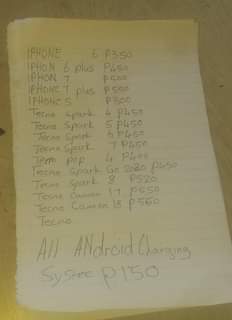 IPHONE 6 P350
IPHON 6 plus P450
IPHON 7 P500
IPHONE 7 plus P500
IPHONE 5 P300
Tecno Spark 4 P450
Tecno Spark 5 P450
Tecno Spark 6 P450
Tecno Spark 7 P450
Tecno pop 4 P400
Tecno Spark Go 2020 P450
Tecno Spark 8 P520
Tecno Camon 17 P550
Tecno Camon 18 P560
Tecno
All ANdroid Charging
System P150